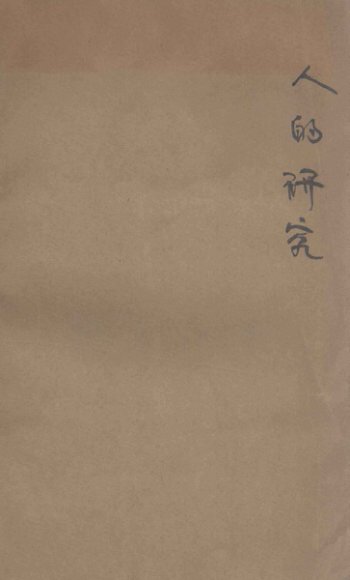 人的研究